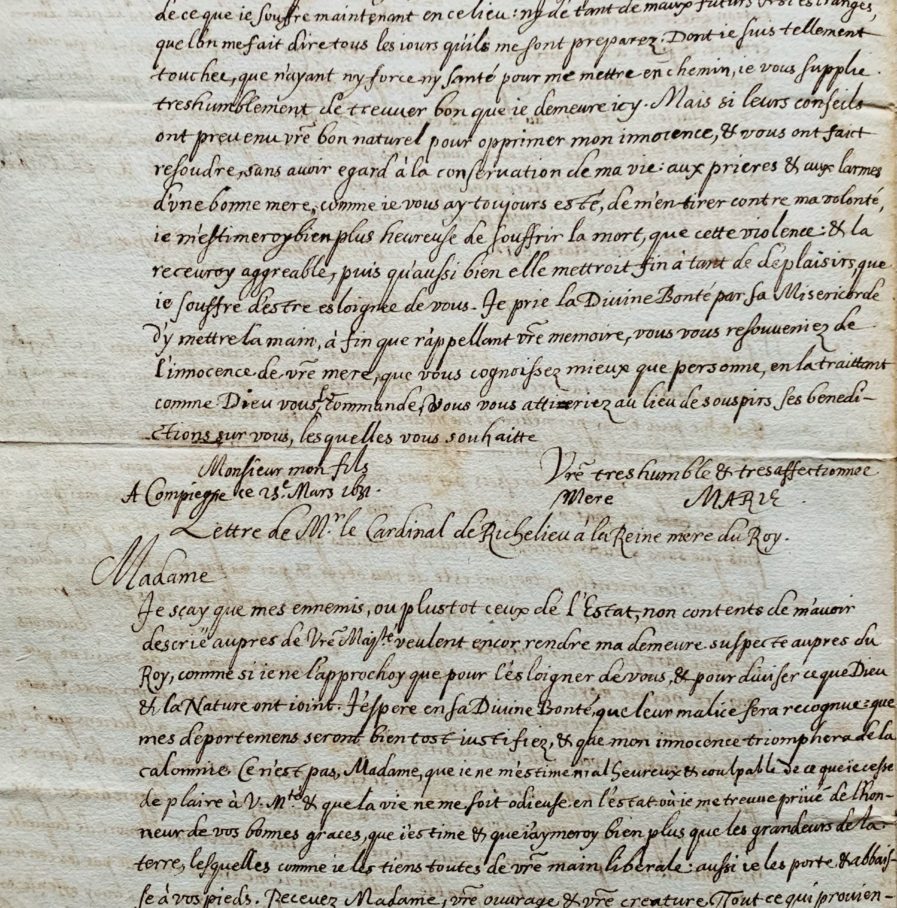 de ce que ie souffre maintenant en ce lieu: ny de tant de maux futurs & si estranges,
que l'on me fait dire tous les iours qu'ils me sont preparez. Dont ie suis tellement
touchee, que n'ayant ny force ny santé pour me mettre en chemin, ie vous supplie
treshumblement de treuver bon que ie demeure icy. Mais si leurs conseils
ont prevenu vr̃e bon naturel pour opprimer mon innocence, & vous ont faict
resoudre, sans avoir egard à la conservation de ma vie: aux prieres & aux larmes
d'vne bonne mere, comme ie vous ay toujours esté, de m'en tirer contre ma volonté,
ie m'estimeroy bien plus heureuse de souffrir la mort, que cette violence: & la
recevroy aggreable, puis qu'aussi bien elle mettroit fin à tant de deplaisirs, que
ie souffre d'estre esloignee de vous. Je prie la Divine Bonté par sa Misericorde
d'y mettre la main, à fin que r'appellant vr̃e memoire, vous vous resouveniez de
l'innocence de vr̃e mere, que vous cognoissez mieux que personne, en la traittant
comme Dieu vous commande, vous vous attireriez au lieu de souspirs ses benedi-
ctions sur vous, lesquelles vous souhaitte
Monsieur mon fils Vr̃e tres humble & tres affectionnee
A Compiegne ce 25e. Mars 1631. Mere MARIE.
Lettre de Mr. le Cardinal de Richelieu à la Reine mere du Roy.
Madame
Je sçay que mes ennemis, ou plustot ceux de l'Estat, non contents de m'avoir
descrié aupres de Vr̃e Majté. veulent encor rendre ma demeure suspecte aupres du
Roy, comme si ie ne l'approchoy que pour l'esloigner de vous, & pour diviser ce que Dieu
& la Nature ont ioint. J'espere en sa Divine Bonté, que leur malice sera recognue: que
mes deportemens seront bien tost iustifiez, & que mon innocence triomphera de la
calomnie. Ce n'est pas, Madame, que ie ne m'estime malheureux & coulpable de ce que ie cesse
de plaire à V. Mté & que la vie ne me soit odieuse en l'estat où ie me treuve privé de l'hon-
neur de vos bonnes graces, que i'estime & que i'aymeroy bien plus que les grandeurs de la
terre, lesquelles comme ie les tiens toutes de vr̃e main liberale: aussi ie les porte & abbais-
se à vos pieds. Recevez Madame, vr̃e ouvrage & vr̃e creature. Tout ce qui provien-